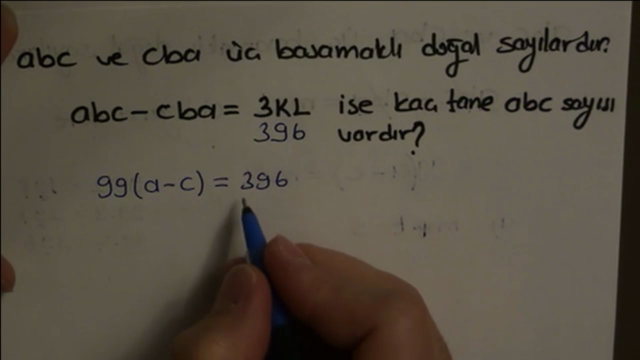 abc ve cba üç basamaklı doğal sayılardır.
abc-cba= 3KL ise kaç tane abc sayısı
396 vardır?
99(a-c) = 396